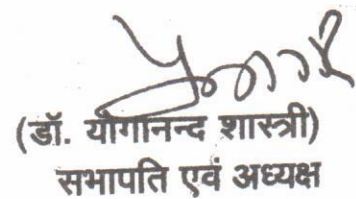 (डॉ. योगानन्द शास्त्री)
सभापति एवं अध्यक्ष